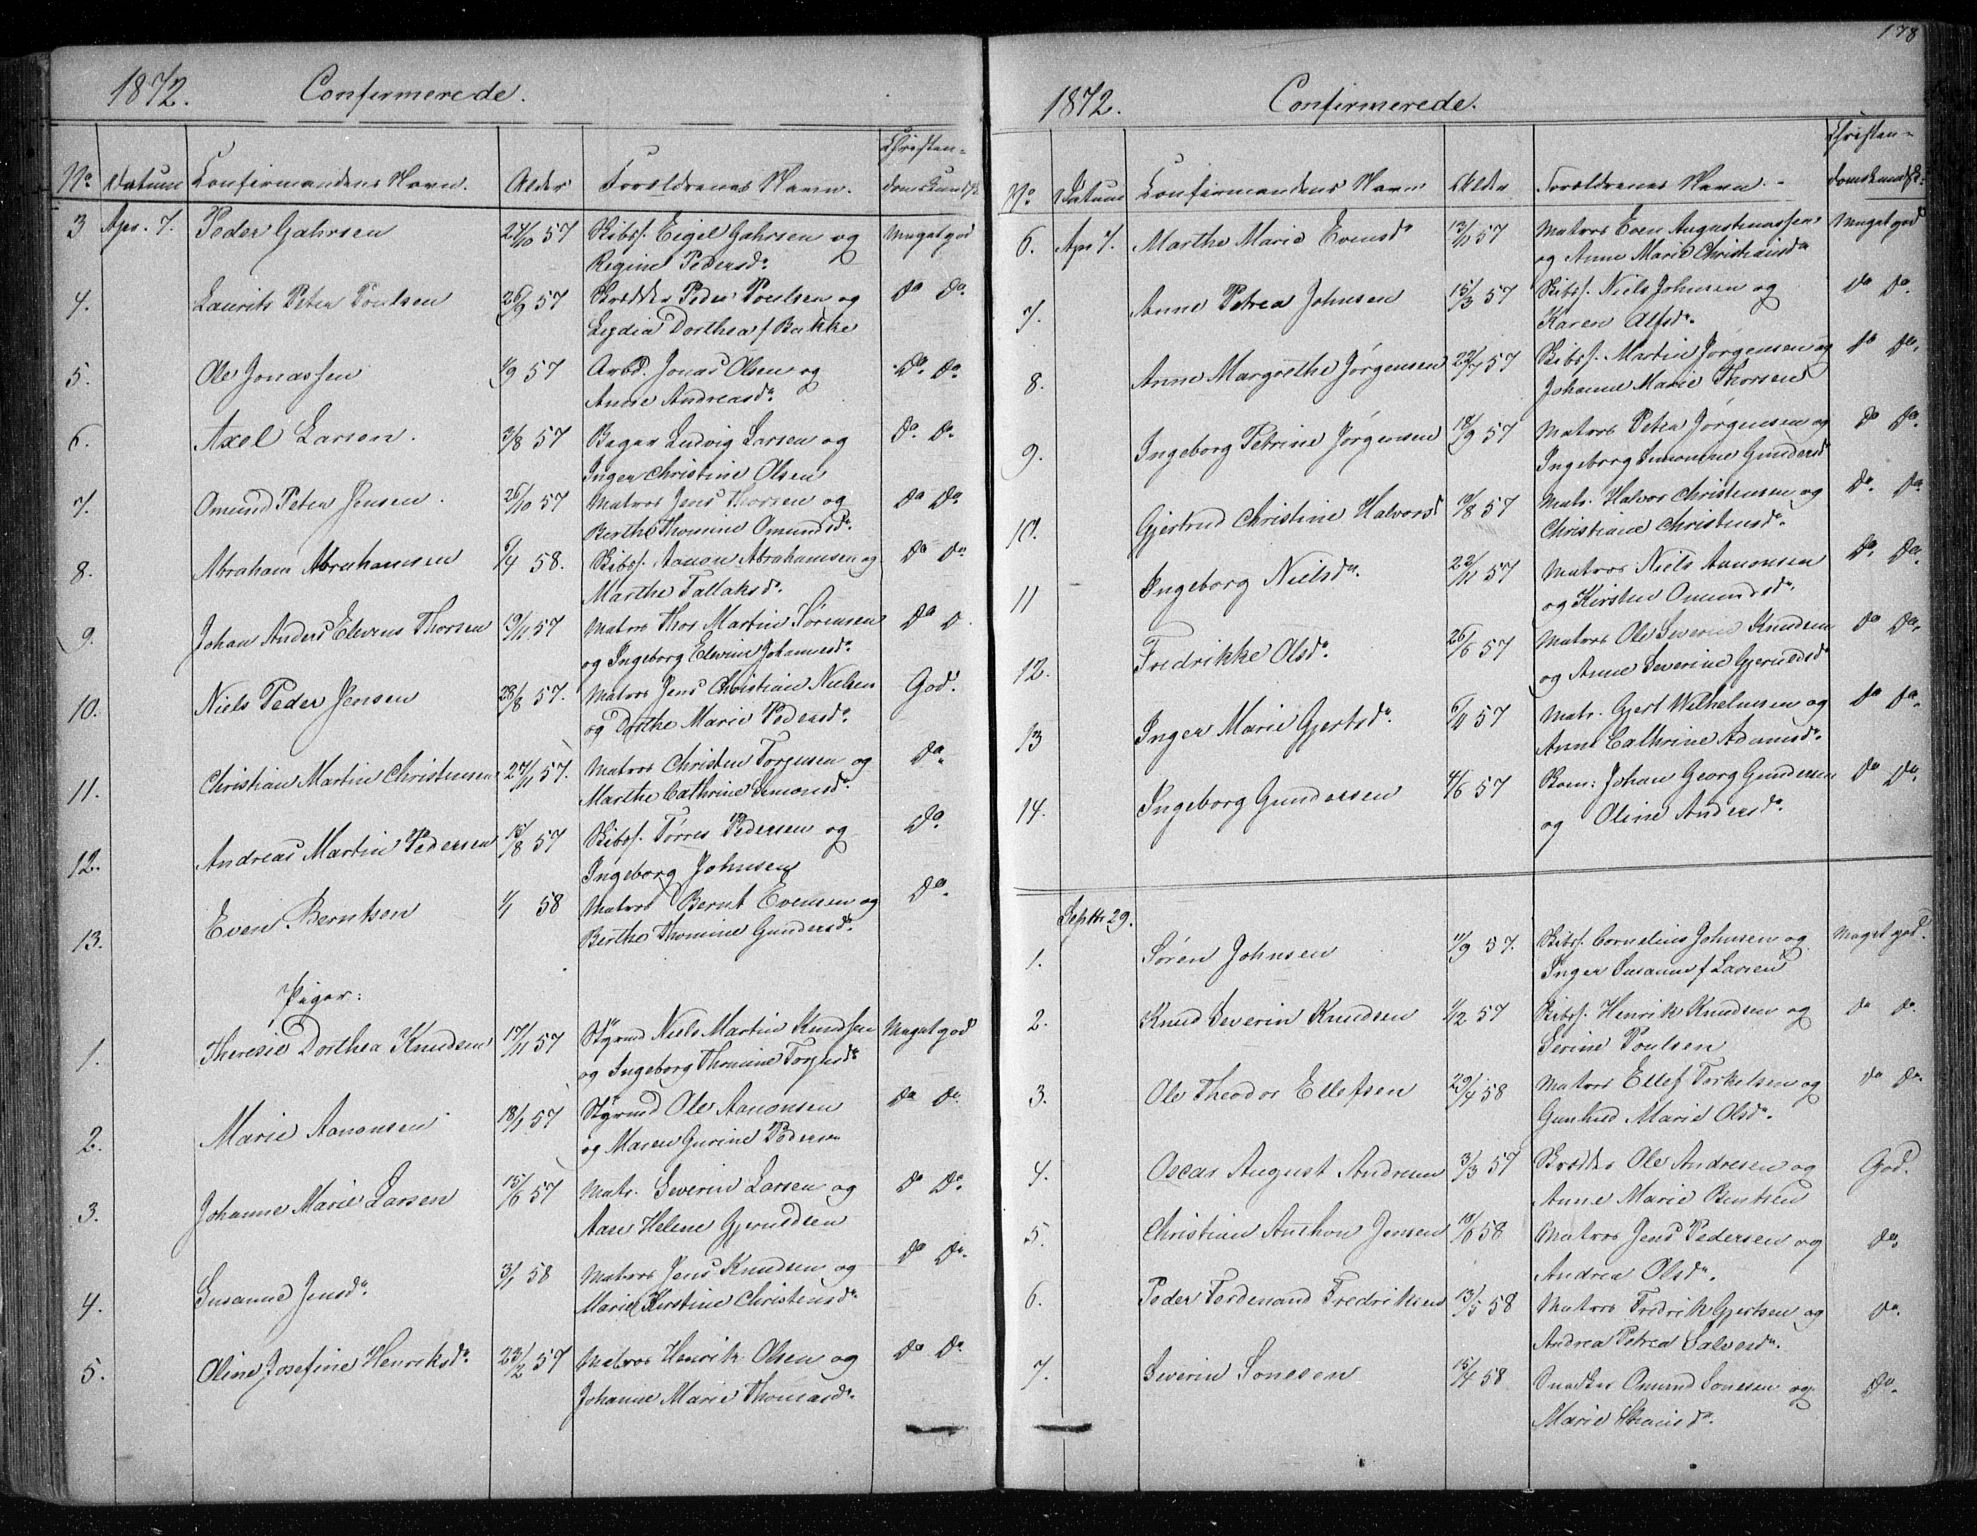 1872. Confirmerede.
No Datum Confirmandens Navn. Alder Forældrenes Navn. Christendomskundsk.
3 Apr. 7. Peder Gahrsen 24/10 57 Skibsf. Eigil Gahrsen og Meget god
Regine Pedersd.
4. Laurits Peter Poulsen 26/9 57 Skrædder Peder Poulsen og Do Do.
Lydia Dorthea f Bakke
5. Ole Jonassen 1/9 57 Arbd. Jonas Olsen og Do. Do.
Anne Andreasd.
6. Axel Larsen. 3/8 57 Bager Ludvig Larsen og Do. Do.
Inger Christine Olsen
7. Omund Peter Jensen. 26/10 57 Matros Jens Thorsen og Do Do.
Berthe Thomine Omundsd.
8. Abraham Abrahamsen 6/4 58. Skibsf. Aanon Abrahamsen og Do Do
Marthe Tallaksd.
9. Johan Anders Elevius Thorsen 19/11 57 Matros Thor Martin Sørensen Do D.
og Ingeborg Elevine Johannesd.
10. Niels Peder Jensen 28/8 57. Matros Jens Christian Nielsen God.
og Dorthe Marie Pedersd.
11. Christian Martin Christensen 27/11 57. Matros Christen Torjusen og Do
Marthe Cathrine Simonsd.
12. Andreas Martin Pedersen 15/8 57 Skibsf. Tørres Pedersen og Do.
Ingeborg Johnsen
13. Even Berntsen 1/1 58 Matros Bernt Evensen og Do.
Berthe Thomine Gundersd.
Piger:
1. Theresie Dorthea Knudsen 17/11 57 Styrmd Niels Martin Knudsen Meget god
og Ingeborg Thomine Torjusd.
2. Marie Aanonsen 18/1 57 Styrmd Ole Aanonsen Do Do.
og Maren Gurine Pedersen
3. Johanne Marie Larsen 15/6 57 Matr. Severin Larsen og Do Do.
Aase Helene Gjeruldsen
4. Susanne Jensd. 3/1 58 Matros Jens Knudsen og Do Do.
Marie Kirstine Christensd.
5. Oline Josefine Henriksd. 23/2 57 Matros Henrik Olsen og Do Do.
Johanne Marie Thomasd.
178
1872. Confirmerede.
No Datum Confirmandens Navn Alder Forældrenes Navn. Christendomskundsk.
6. Apr 7. Marthe Marie Evensd. 13/11 57 Matros Even Augustinussen Meget god
og Anne Marie Christiansd.
7. Anne Petrea Johnsen 15/3 57 Skibsf. Niels Johnsen og Do Do.
Karen Olsd.
8. Anne Margrethe Jørgensen 22/7 57 Skibsf. Martin Jørgensen og Do Do.
Johanne Marie Thorsen
9. Ingeborg Petrine Jørgensen 18/9 57 Matros Peter Jørgensen og Do Do.
Ingeborg Simonine Gundersd
10. Gjertrud Christine Halvorsd 19/8 57 Matr. Halvor Christensen og Do. Do.
Christiane Christensd.
11 Ingeborg Nielsd. 22/11 57 Matros Niels Aanonsen Do. Do.
og Kirsten Omundsd.
12. Fredrikke Olsd. 26/6 57 Matros Ole Severin Knudsen Do Do.
og Anne Severine Gjeruldsd
13 Inger Marie Gjertsd. 6/11 57 Matr. Gjert Wilhelmsen og Do Do.
Anne Cathrine Adamsd.
14. Ingeborg Gundersen 4/6 57 Bom: Johan Georg Gundersen Do Do.
og Oline Andersd.
Septbr 29.
1. Søren Johnsen 11/9 57. Skibsf. Cornelius Johnsen og Meget god.
Inger Susanne f Larsen
2. Knud Severin Knudsen 1/12 57 Skibsf. Henrik Knudsen og Do Do.
Serine Poulsen
3. Ole Theodor Ellefsen 29/4 58 Matros Ellef Torkelsen og Do Do.
Gunhild Marie Olsd.
4. Oscar August Andresen 3/3 57 Skrædder Ole Andresen og God.
Anne Marie Berntsen
5. Christian Anthon Jensen 18/6 58 Matros Jens Pedersen og Do.
Andrea Olsd.
6. Peder Ferdenand Fredriksen 13/5 58 Matros Fredrik Gjertsen og Do.
Andrea Petrea Salvesd.
7. Severin Sonesen 15/4 58 Snedker Omund Sonesen og Do.
Marie